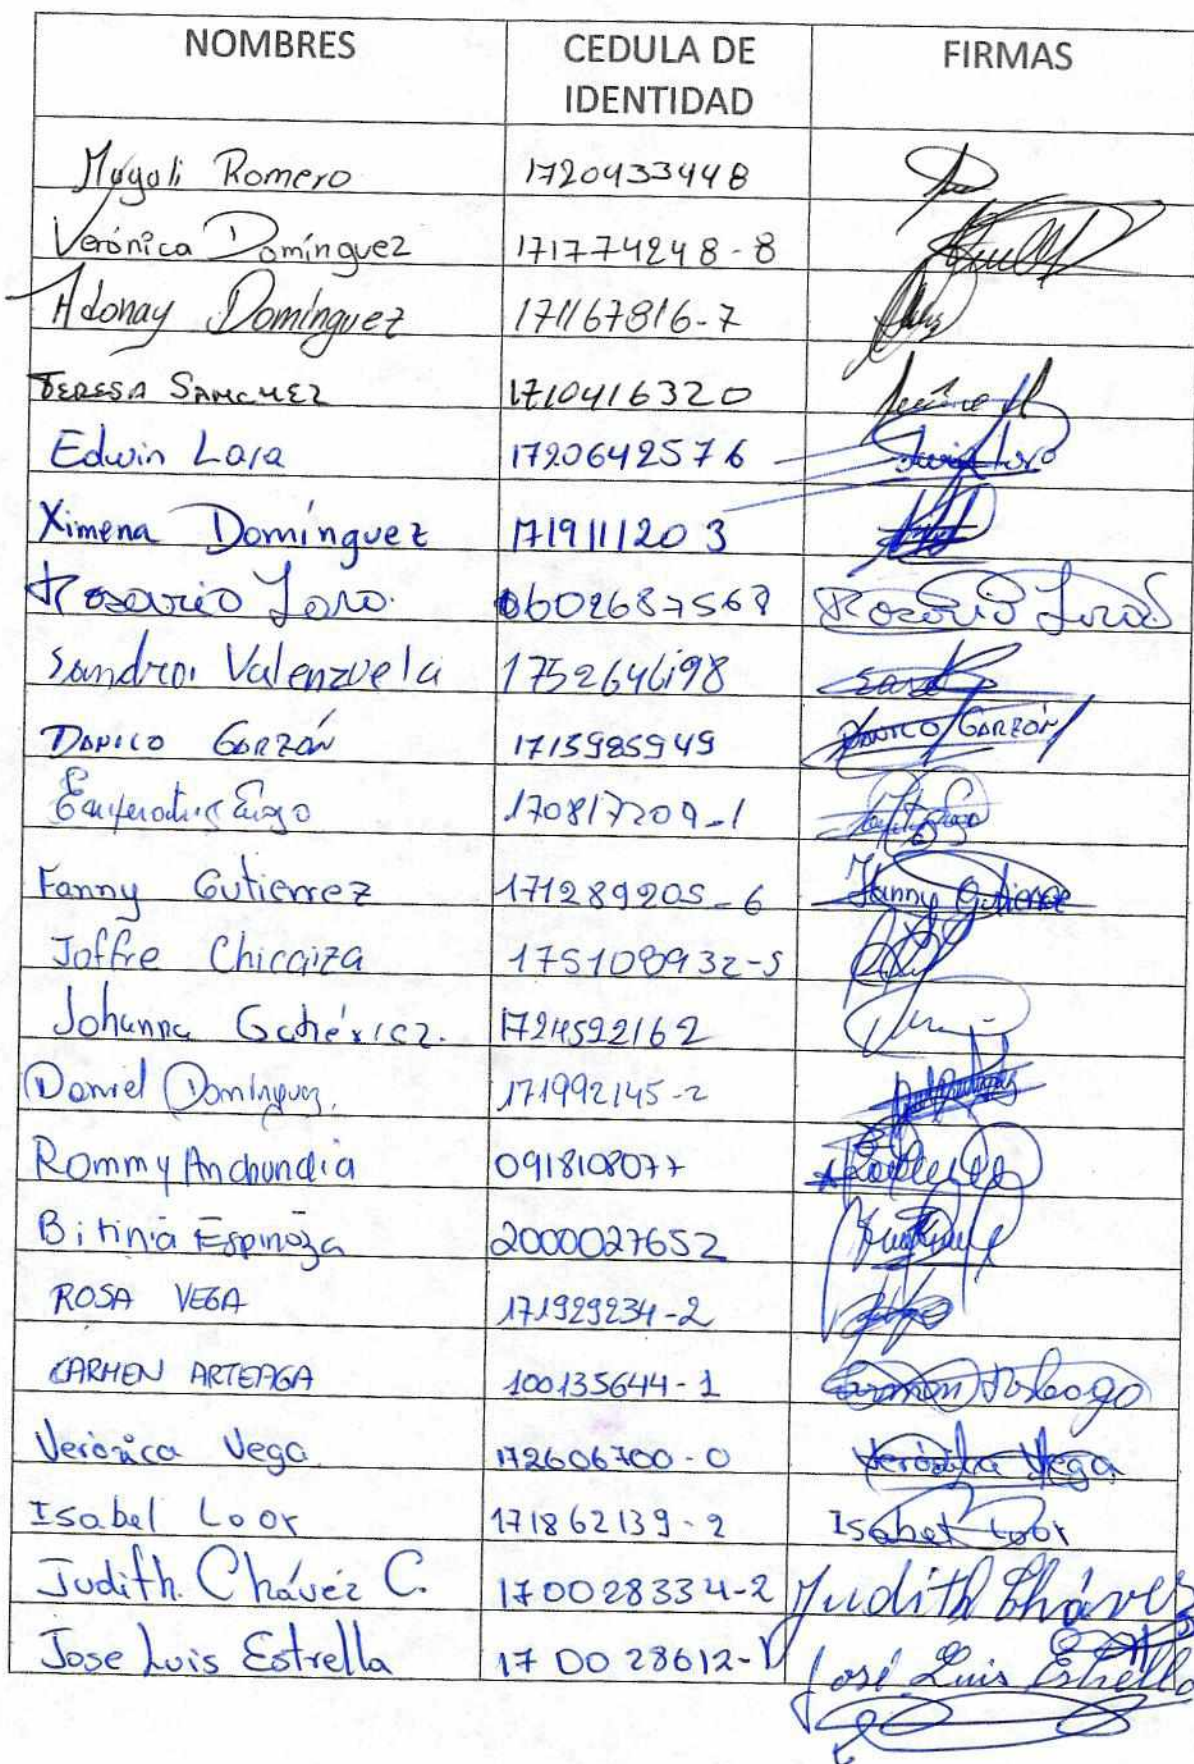 NOMBRES CEDULA DE IDENTIDAD FIRMAS
Magali Romero 1720433448
Verónica Domínguez 171774248-8
Adonay Domínguez 171167816-7
TERESA SANCHEZ 1710416320
Edwin Lara 1720642576
Ximena Domínguez 1719111203
Rosario Lara. 0602687568 Rosario Lara
Sandra Valenzuela 1752646198
DANILO GARZÓN 1713985949 DANILO GARZÓN
170817209-1
Fanny Gutierrez 171289205-6 Fanny Gutierrez
Joffre Chicaiza 175108932-5
Johanna 1724592162
Daniel Domínguez. 171992145-2
Rommy Anchundia 0918108077
Bitinia Espinoza 2000027652
ROSA VEGA 171929234-2
CARMEN ARTEAGA 100135644-1 Carmen Arteaga
Verónica Vega 172606700-0 Verónica Vega
Isabel Loor 171862139-2 Isabel Loor
Judith. Chávez C. 170028334-2 Judith Chávez
Jose Luis Estrella 170028612-1 José Luis Estrella